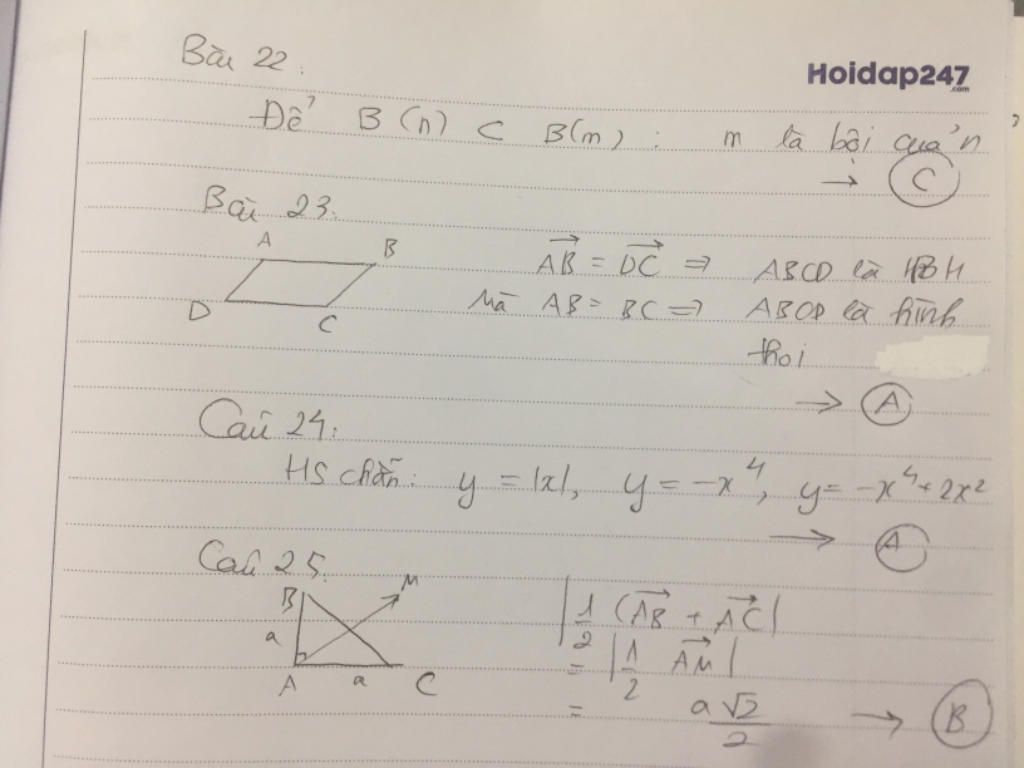 Bài 22:
Hoidap247
.com
Để B(n) ⊂ B(m): m là bội của n
→ C
Bài 23.
A B
D C
AB = DC ⇒ ABCD là HBH
Mà AB = BC ⇒ ABCD là hình
thoi
→ A
Câu 24:
HS chẵn: y = |x|, y = -x⁴, y = -x⁴ + 2x²
→ A
Câu 25.
B M
a
A a C
|1/2 (AB + AC|
= |1/2 AM|
= a√2/2 → B